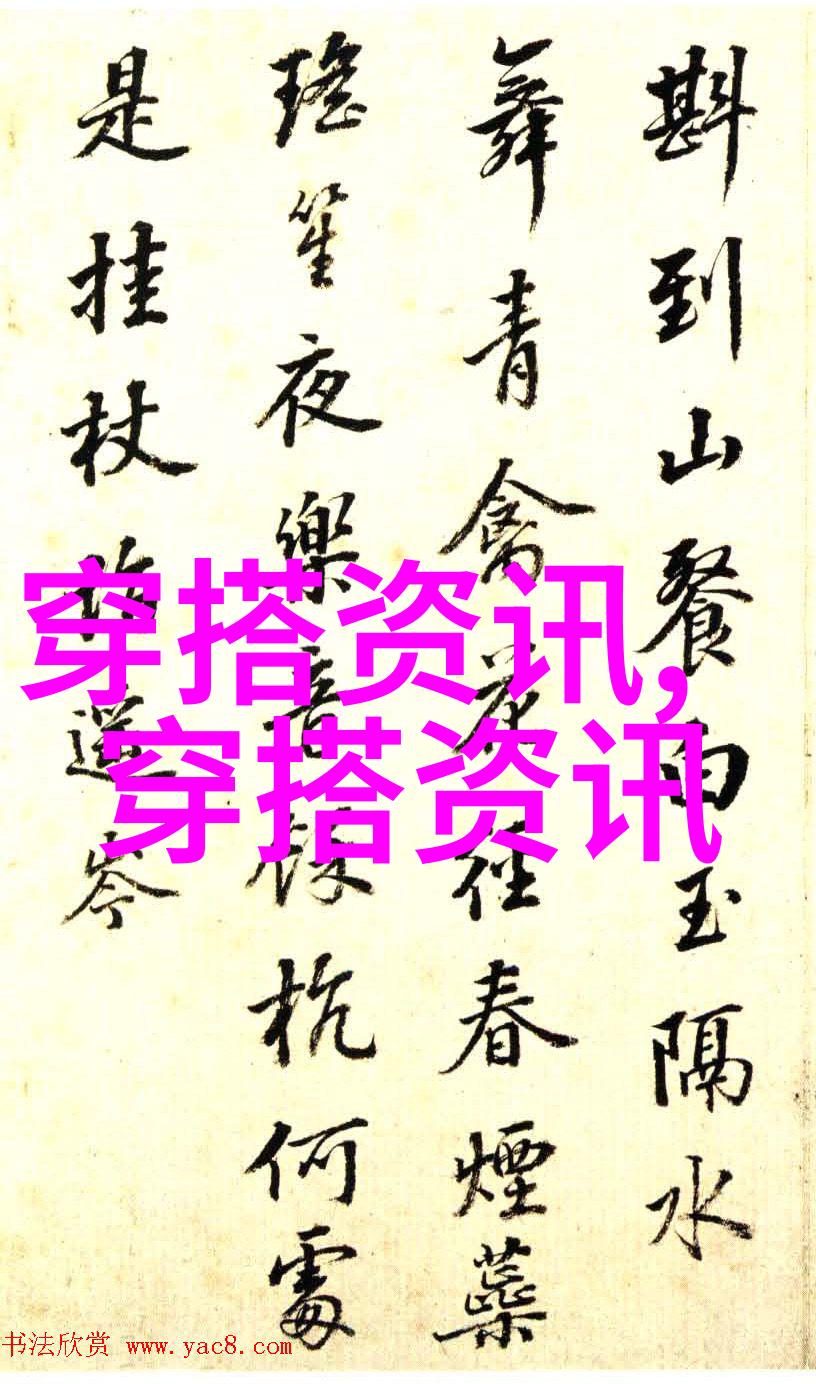 斟到山餐白玉隔水
舞青禽花径春煙蘂
瑤笙夜樂音餘杭何處
是挂杖访遥岑
穿搭资讯,
穿搭资讯
书法欣赏 www.yac8.com